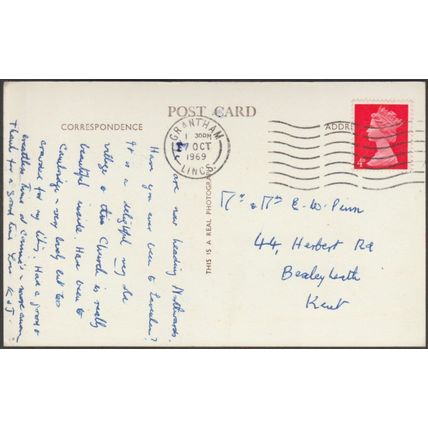 POST CARD
CORRESPONDENCE
ADDRE
GRANTHAM
1 30PM
7 OCT
1969
LINCS.
4D
THIS IS A REAL PHOTOGRAPH
We are now heading Northwards.
Have you ever been to Lavenham?
It is a delightful
village & this Church is really
beautiful inside. Have been to
Cambridge - very lovely but too
crowded for my liking. Had a
time at Connie's
Thanks for a good time Love K & J.
Mr & Mrs E. W. Penn
44, Herbert Rd
Bexleyheath
Kent